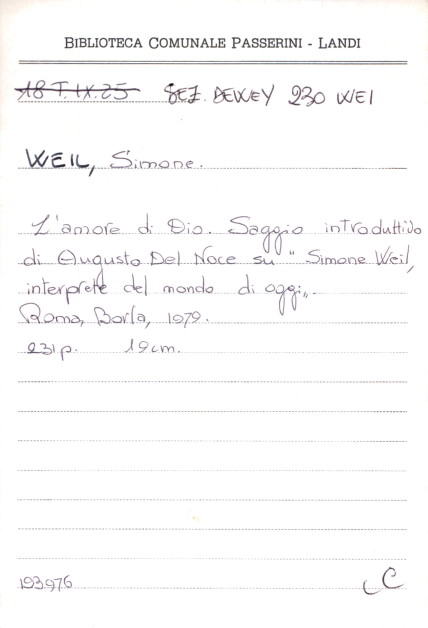 BIBLIOTECA COMUNALE PASSERINI - LANDI
18 T.IX.25 SEZ. DEWEY 230 WEI
WEIL, Simone.
L'amore di Dio. Saggio introduttivo
di Augusto Del Noce su "Simone Weil,
interprete del mondo di oggi".
Roma, Borla, 1979.
231 p. 19 cm.
193976